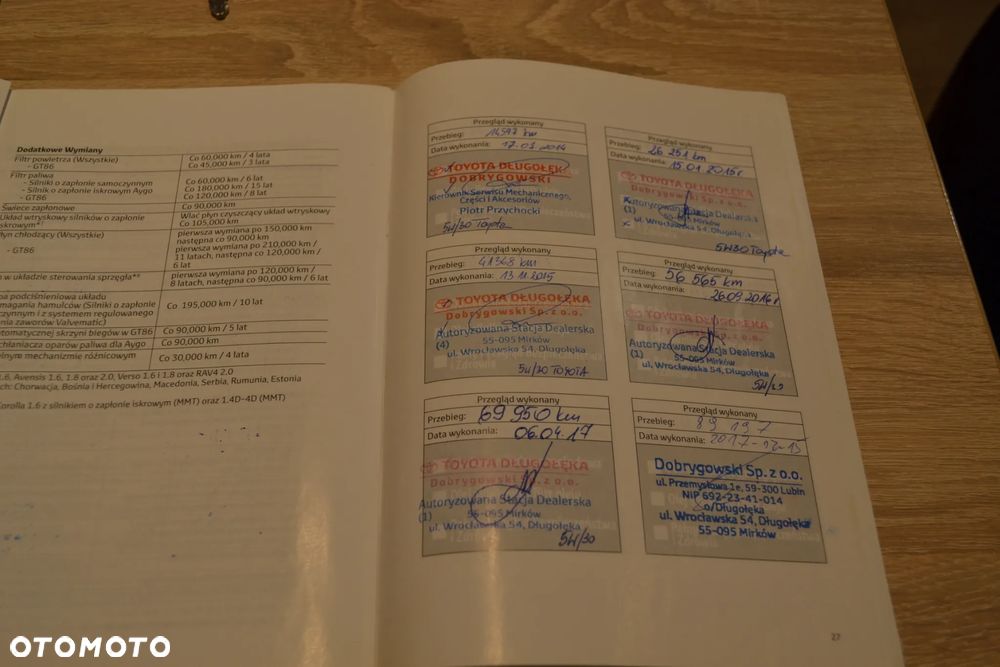 Dodatkowe Wymiany
Filtr powietrza (Wszystkie) Co 60,000 km / 4 lata
- GT86 Co 45,000 km / 3 lata
Filtr paliwa
- Silniki o zapłonie samoczynnym Co 60,000 km / 6 lat
- Silnik o zapłonie iskrowym Aygo Co 180,000 km / 15 lat
- GT86 Co 120,000 km / 8 lat
Świece zapłonowe Co 90,000 km
Układ wtryskowy silników o zapłonie Wlać płyn czyszczący układ wtryskowy
iskrowym* Co 105,000 km
płyn chłodzący (Wszystkie) pierwsza wymiana po 150,000 km
następna co 90,000 km
- GT86 pierwsza wymiana po 210,000 km /
11 latach, następna co 120,000 km /
6 lat
n w układzie sterowania sprzęgła** pierwsza wymiana po 120,000 km /
8 latach, następna co 90,000 km / 6 lat
pa podciśnieniowa układu
magania hamulców (Silniki o zapłonie Co 195,000 km / 10 lat
czynnym i z systemem regulowanego
nia zaworów Valvematic)
utomatycznej skrzyni biegów w GT86 Co 90,000 km / 5 lat
chłaniacza oparów paliwa dla Aygo Co 90,000 km
lnym mechanizmie różnicowym Co 30,000 km / 4 lata
1.6, Avensis 1.6, 1.8 oraz 2.0, Verso 1.6 i 1.8 oraz RAV4 2.0
ch: Chorwacja, Bośnia i Hercegowina, Macedonia, Serbia, Rumunia, Estonia
Corolla 1.6 z silnikiem o zapłonie iskrowym (MMT) oraz 1.4D-4D (MMT)
Przegląd wykonany
Przebieg: 14597 km
Data wykonania: 17.01.2014
TOYOTA DŁUGOŁĘKA
DOBRYGOWSKI
Kierownik Serwisu Mechanicznego,
Części i Akcesoriów
Piotr Przychocki
5W/30 Toyota
Przegląd wykonany
Przebieg: 26 251 km
Data wykonania: 15.01.2015r
TOYOTA DŁUGOŁĘKA
Dobrygowski Sp. z o.o.
Autoryzowana Stacja Dealerska
(1) 55-095 Mirków
ul. Wrocławska 54, Długołęka
5W30 Toyota
Przegląd wykonany
Przebieg: 41348 km
Data wykonania: 13.11.2015
TOYOTA DŁUGOŁĘKA
Dobrygowski Sp. z o.o.
Autoryzowana Stacja Dealerska
(4) 55-095 Mirków
ul. Wrocławska 54, Długołęka
5W/30 TOYOTA
Przegląd wykonany
Przebieg: 56 565 km
Data wykonania: 26.09.2016r
TOYOTA DŁUGOŁĘKA
Dobrygowski Sp. z o.o.
Autoryzowana Stacja Dealerska
(1) 55-095 Mirków
ul. Wrocławska 54, Długołęka
5W/30
Przegląd wykonany
Przebieg: 69 950 km
Data wykonania: 06.04.17
TOYOTA DŁUGOŁĘKA
Dobrygowski Sp. z o.o.
Autoryzowana Stacja Dealerska
(1) 55-095 Mirków
ul. Wrocławska 54, Długołęka
5W/30
Przegląd wykonany
Przebieg: 89 197
Data wykonania: 2017-12-15
Dobrygowski Sp. z o.o.
ul. Przemysłowa 1e, 59-300 Lubin
NIP 692-23-41-014
o/Długołęka
ul. Wrocławska 54, Długołęka
55-095 Mirków
27
OTOMOTO